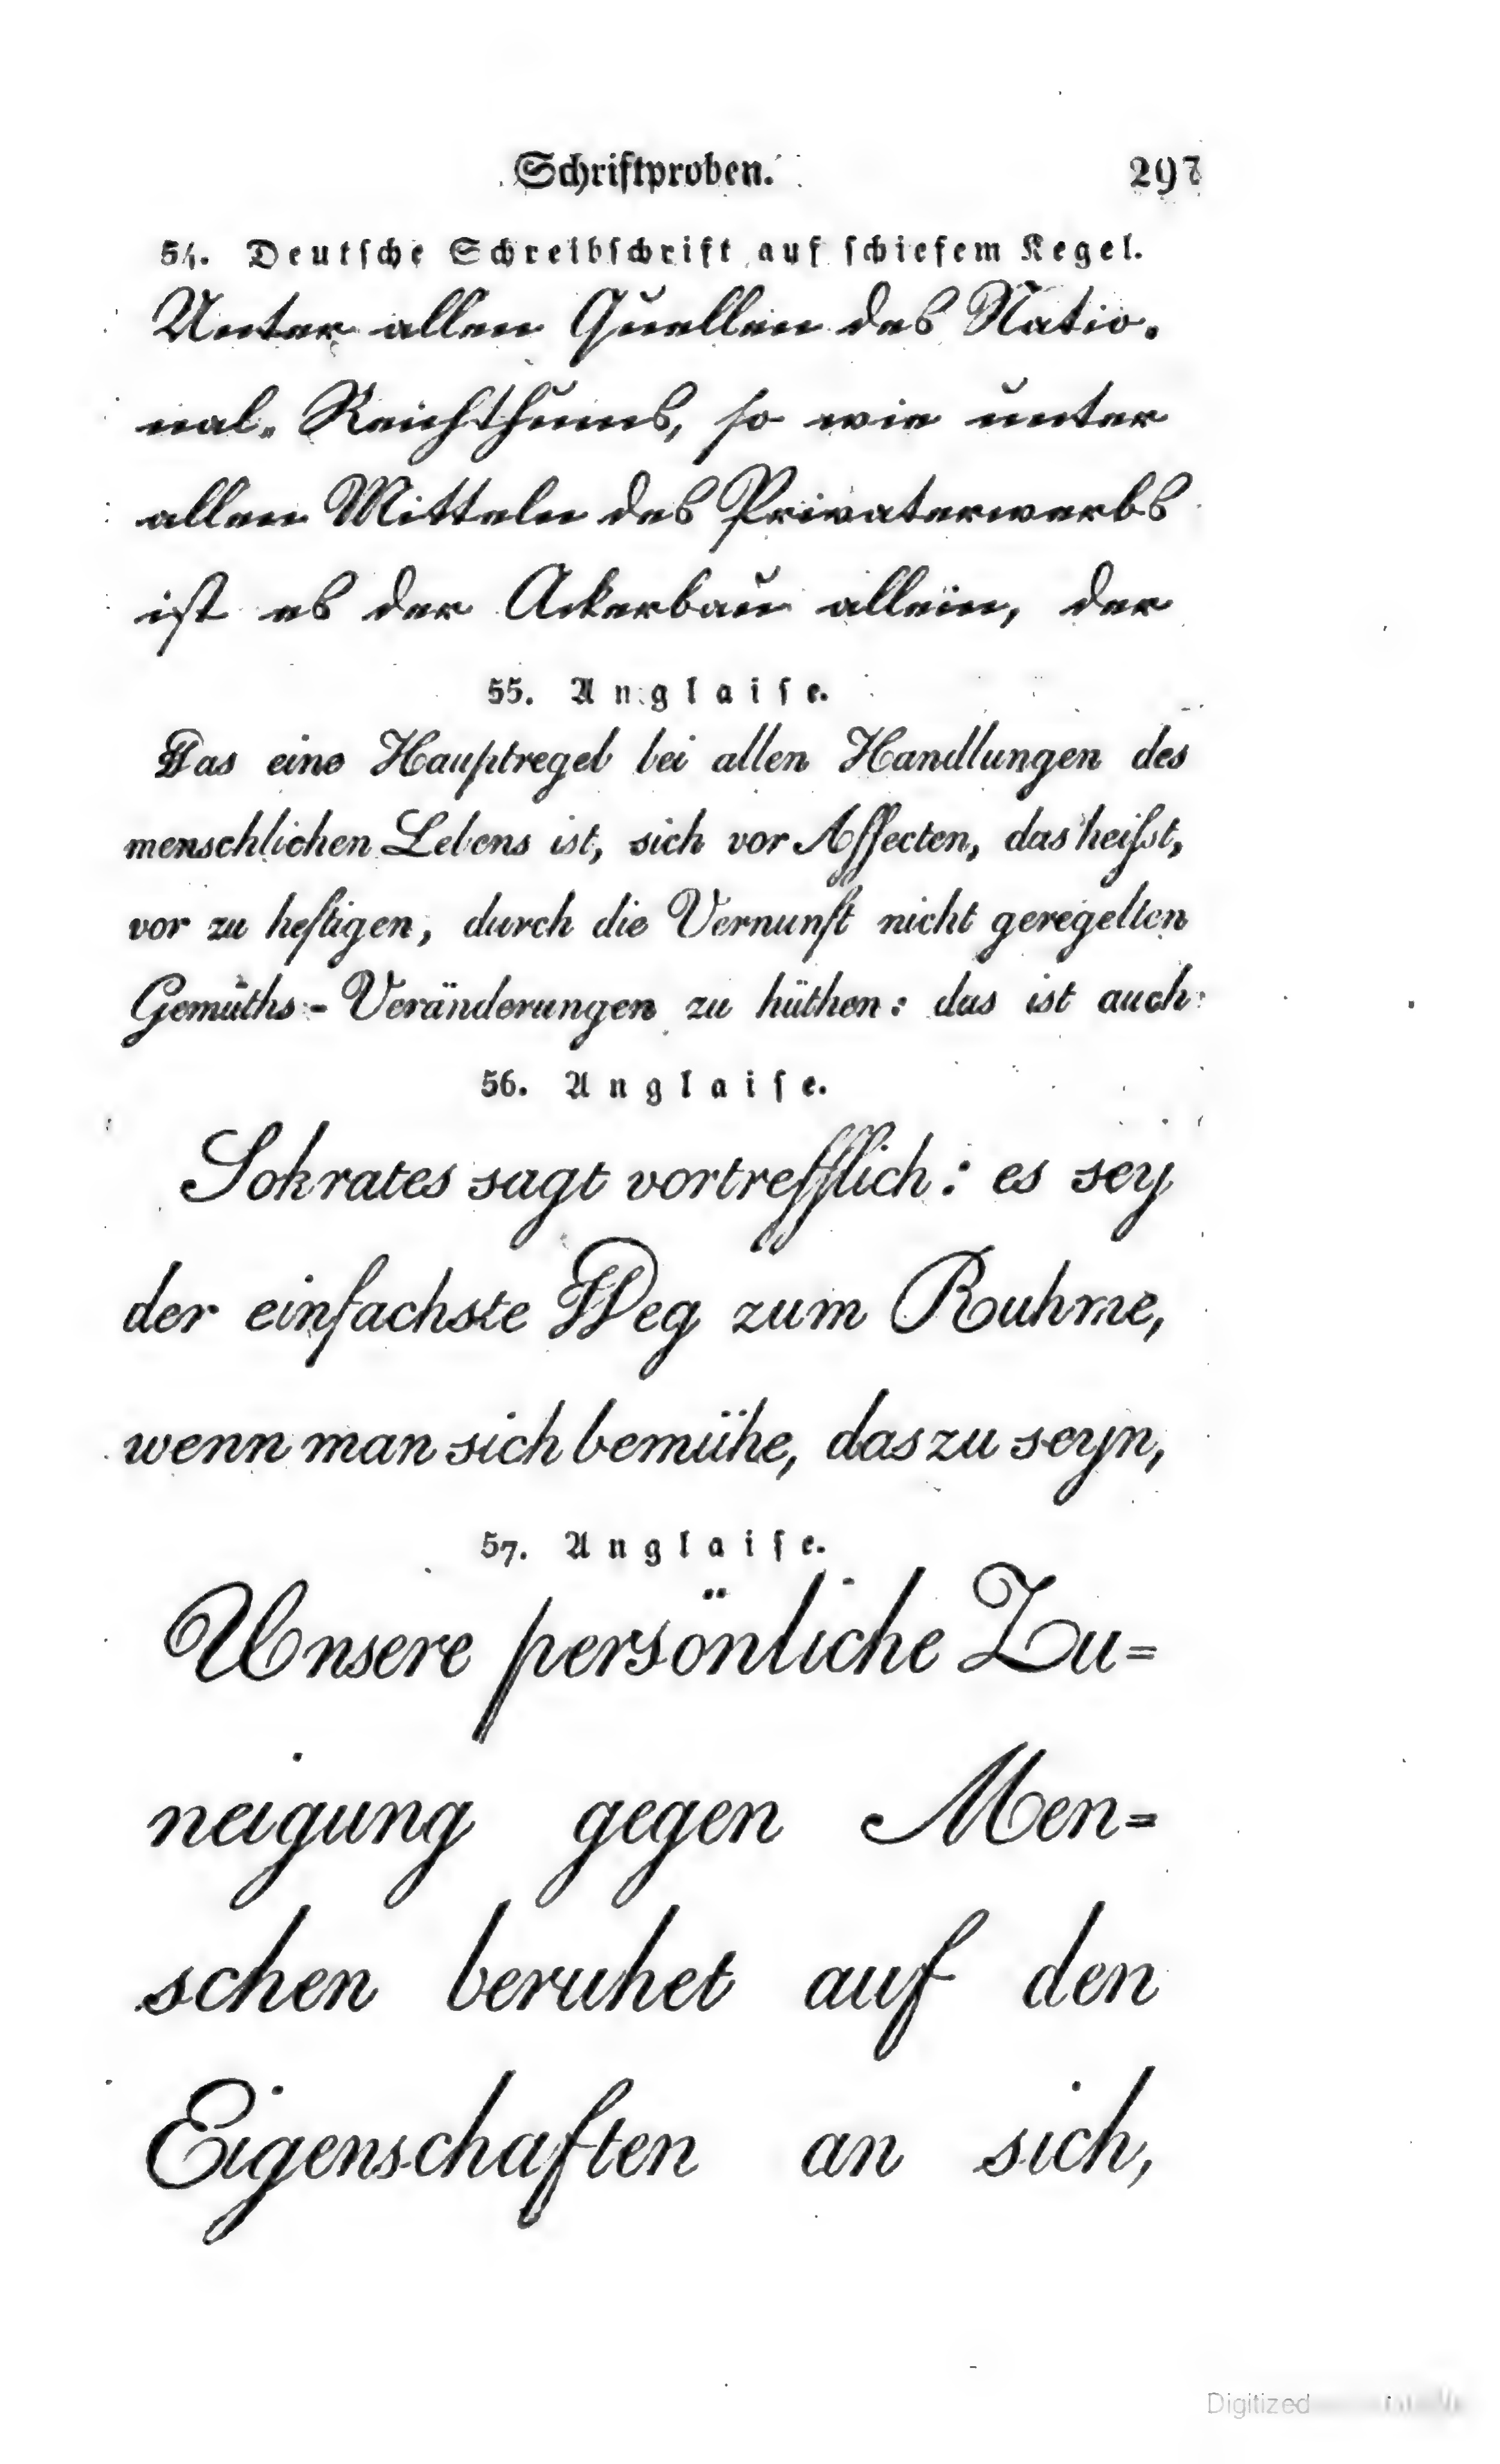 Schriftproben. 297
54. Deutsche Schreibschrift auf schiefem Kegel.
Unter allen Quellen des Natio-
nal-Reichthums, so wie unter
allen Mitteln des Privaterwerbs
ist es der Ackerbau allein, der
55. Anglaise.
Was eine Hauptregel bei allen Handlungen des
menschlichen Lebens ist, sich vor Affecten, das heißt,
vor zu heftigen, durch die Vernunft nicht geregelten
Gemüths-Veränderungen zu hüthen: das ist auch
56. Anglaise.
Sokrates sagt vortrefflich: es sey
der einfachste Weg zum Ruhme,
wenn man sich bemühe, das zu seyn,
57. Anglaise.
Unsere persönliche Zu=
neigung gegen Men=
schen beruhet auf den
Eigenschaften an sich,
Digitized